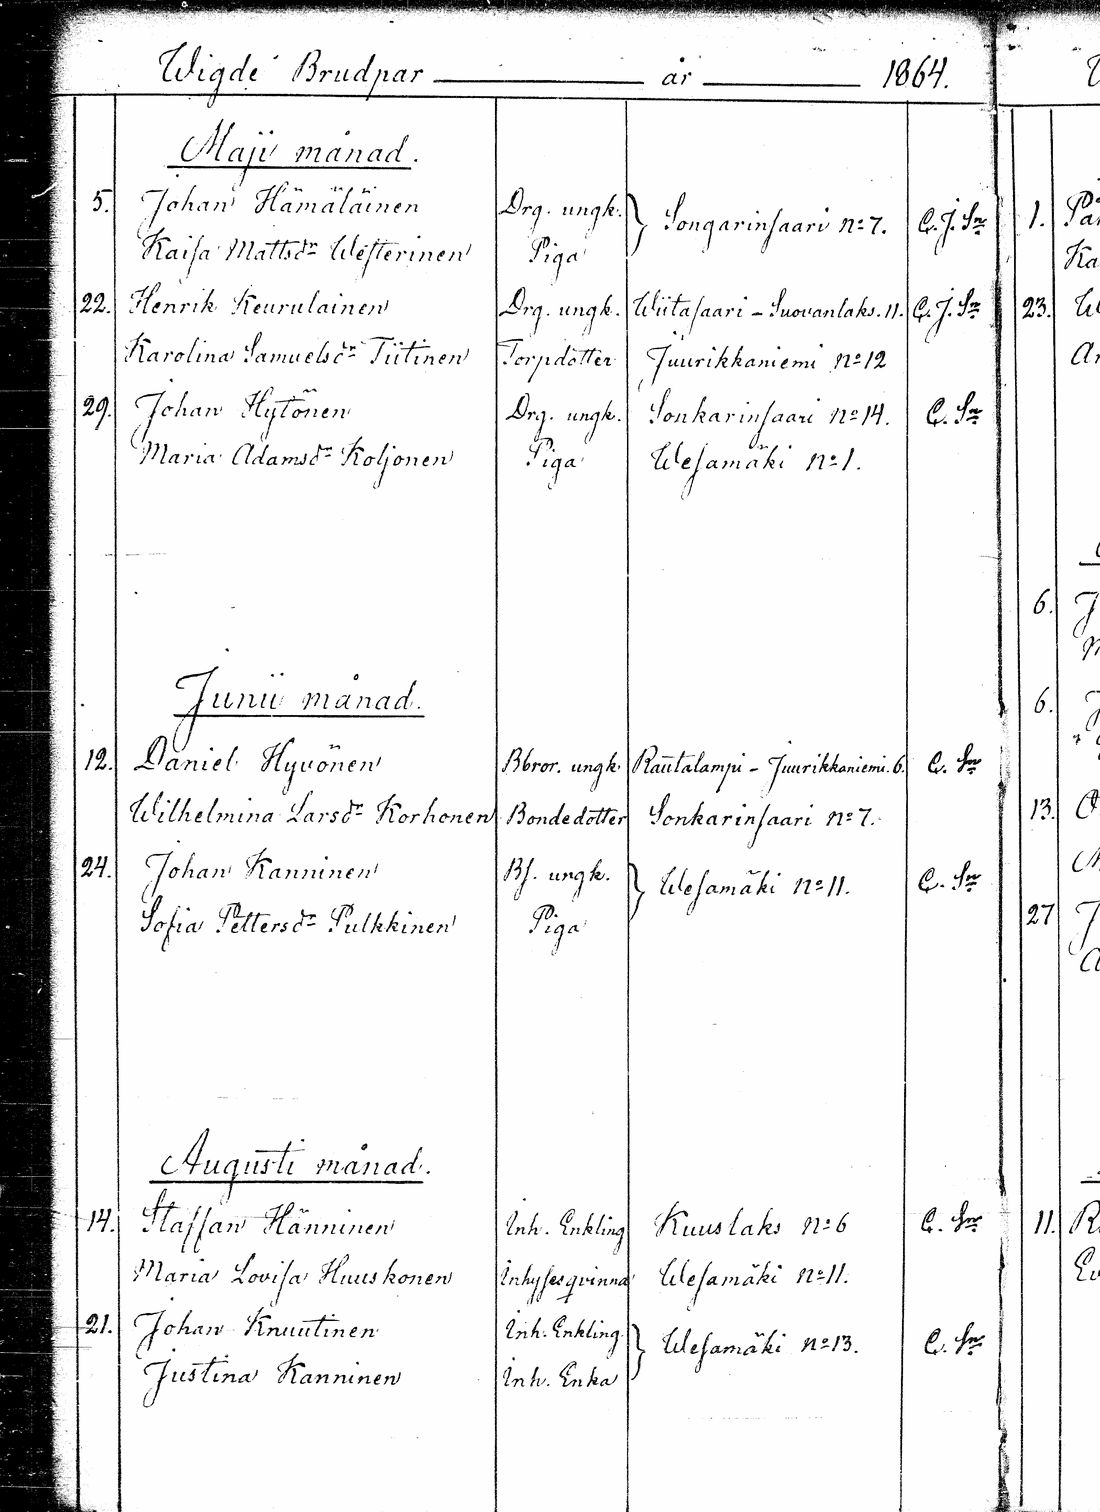 Wigde Brudpar år 1864.
Maji månad.
5. Johan Hämäläinen Drg. ungk. } Songarinsaari No 7. C. J. Sn
Kaisa Mattsdr Westerinen Piga
22. Henrik Keurulainen Drg. ungk. Wiitasaari - Suovanlaks. 11. C. J. Sn
Karolina Samuelsdr Tiitinen Torpdotter Juurikkaniemi No 12
29. Johan Hytönen Drg. ungk. Sonkarinsaari No 14. C. Sn
Maria Adamsdr Koljonen Piga Wesamäki No 1.
Junii månad.
12. Daniel Hyvönen Bbror. ungk. Rautalampi - Juurikkaniemi. 6. C. Sn
Wilhelmina Larsdr Korhonen Bondedotter Sonkarinsaari No 7.
24. Johan Kanninen Bs. ungk. } Wesamäki No 11. C. Sn
Sofia Pettersdr Pulkkinen Piga
Augusti månad.
14. Staffan Hänninen Inh. Enkling Kuuslaks No 6 C. Sn
Maria Lovisa Huuskonen Inhysesqvinna Wesamäki No 11.
21. Johan Knuutinen Inh. Enkling } Wesamäki No 13. C. Sn
Justina Kanninen Inh. Enka
1.
Ka
23.
6.
6.
13.
27
11.